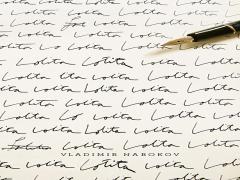 Lolita Lolita Lolita Lolita Lolita
Lolita Lolita Lolita
Lolita Lolita Lolita Lolita
Lolita Lolita Lolita Lolita
Lolita Lolita Lolita Lolita Lolita
Lolita Lolita Lolita Lolita Lolita
Lolita Lolita Lolita Lolita Lolita
Lolita Lolita Lolita Lolita Lolita
Lolita Lolita Lolita Lolita
VLADIMIR NABOKOV
Lolita Lolita Lolita Lolita Lolita